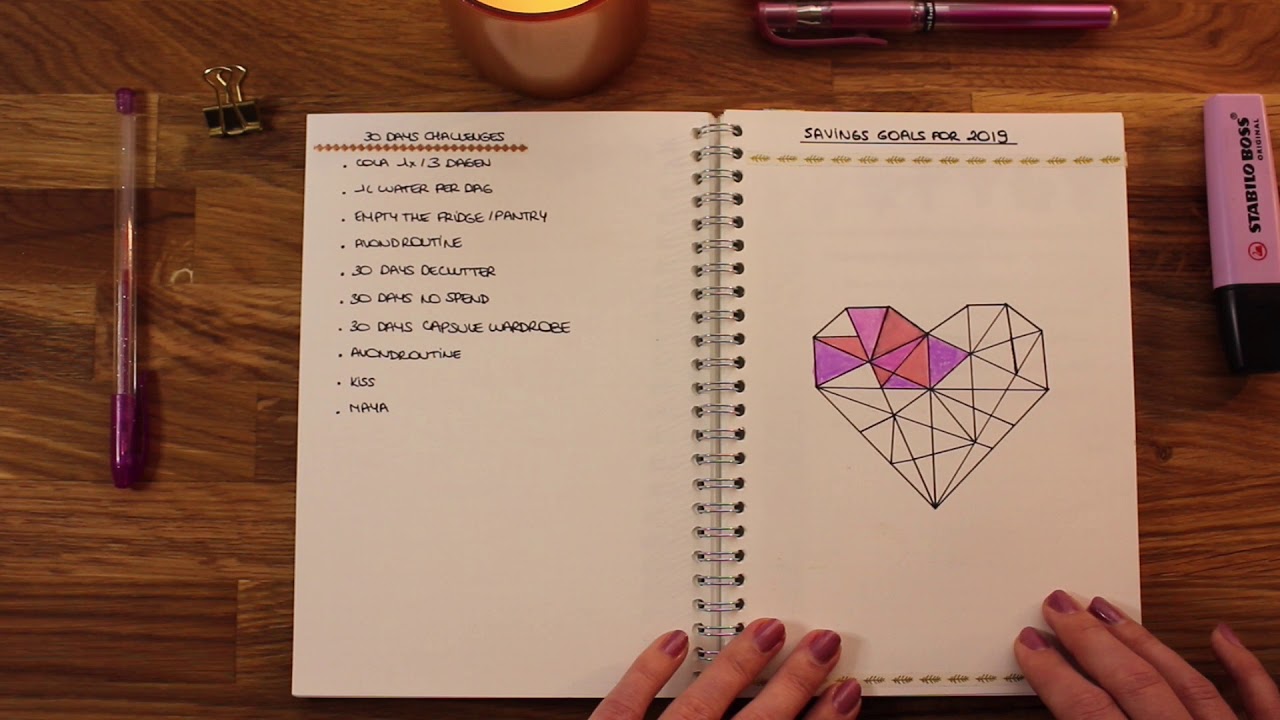 30 DAYS CHALLENGES
. COLA 1x / 3 DAGEN
. 1L WATER PER DAG
. EMPTY THE FRIDGE / PANTRY
. AVONDROUTINE
. 30 DAYS DECLUTTER
. 30 DAYS NO SPEND
. 30 DAYS CAPSULE WARDROBE
. AVONDROUTINE
. KISS
. MAYA
SAVINGS GOALS FOR 2019
STABILO BOSS
ORIGINAL